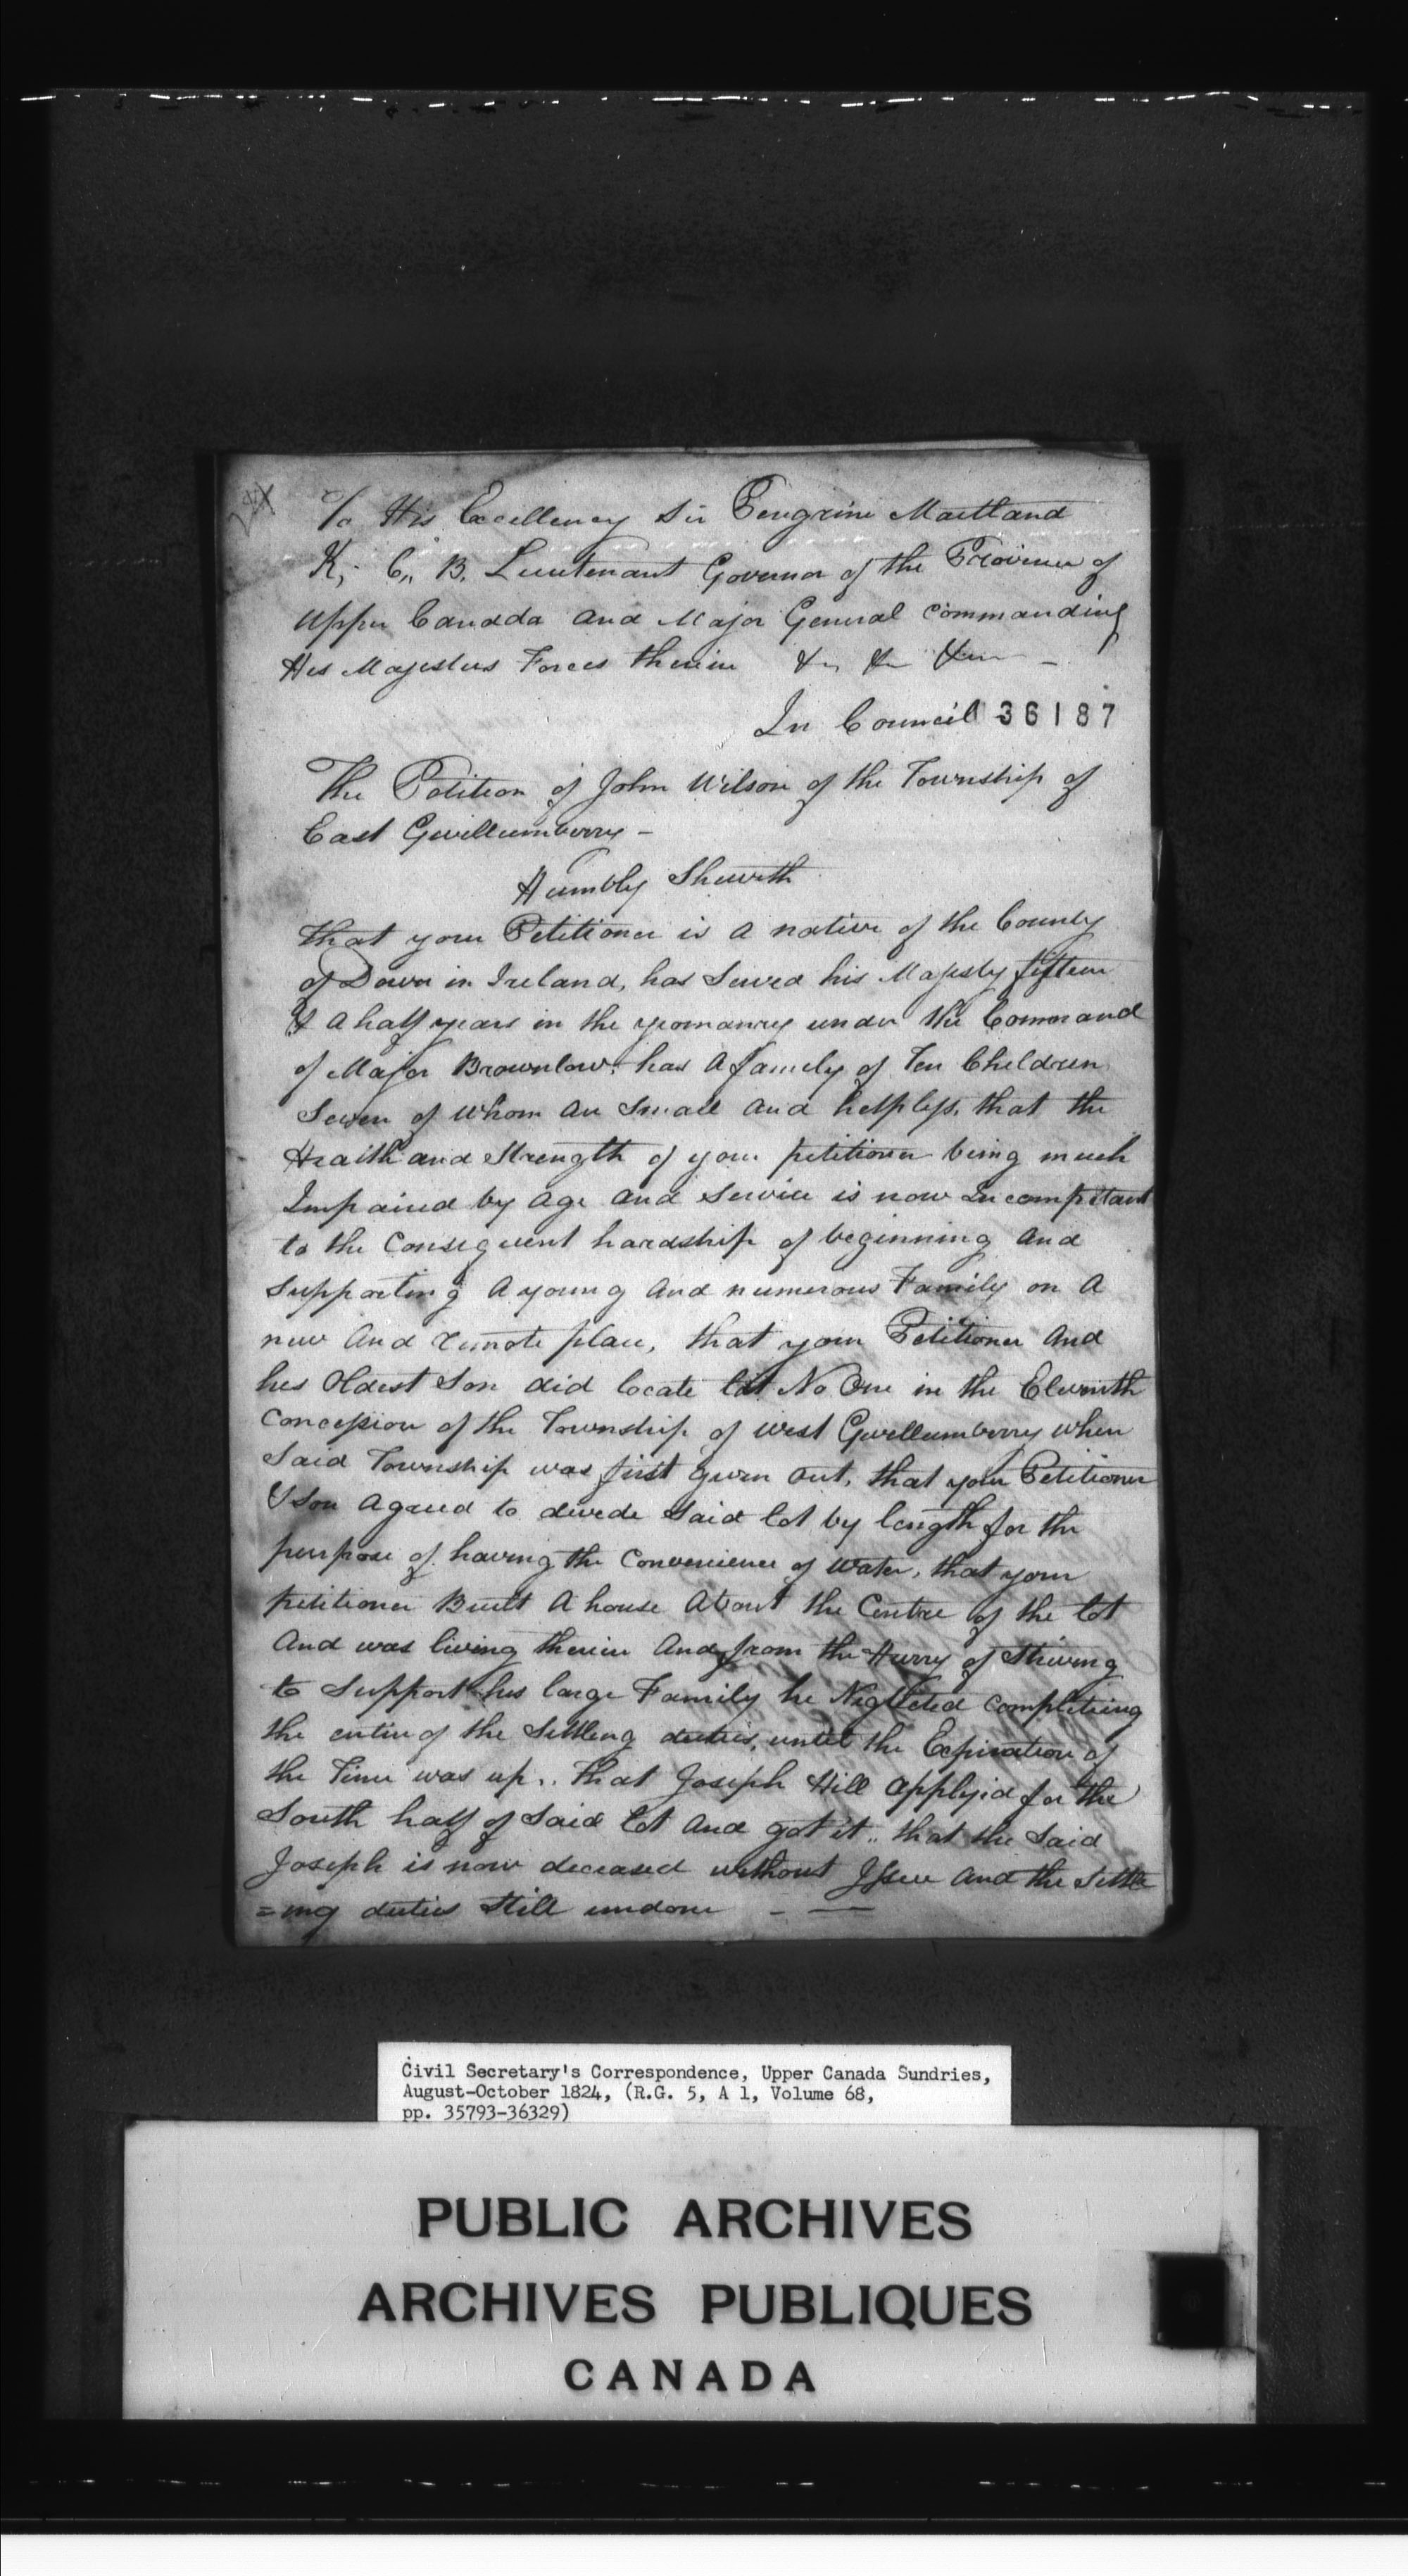 To His Excellency Sir Peregrine Maitland
K,, C,, B, Lieutenant Governor of the Province of
Upper Canada and Major General Commanding
His Majesties Forces therein &c &c &c —
In Council 36187
The Petition of John Wilson of the Township of
East Gwillumberry –
Humbly Sheweth
that your Petitioner is a native of the County
of Down in Ireland, has Served his Majesty fifteen
& a half years in the yeomanry under the Command
of Major Brownlow, has a family of Ten Children
Seven of whom are Small and helpless, that the
Health and Strength of your petitioner being much
Impaired by age and service is now Incompetant
to the Consequent hardship of beginning and
supporting a young and numerous Family on a
new and remote place, that your Petitioner and
his Oldest Son did locate lot No One in the Eleventh
Concession of the Township of west Gwillumberry when
Said Township was first given out, that your Petitioner
& Son agreed to devide said lot by length for the
purpose of having the Convenience of water, that your
petitioner Built a house about the Centre of the lot
And was living therein and from the Hurry of Striving
to Support his large Family he Neglected completeing
the entire of the Settling duties, until the Expiration of
the Time was up,. that Joseph Hill applyed for the
South half of Said lot and got it,. that the Said
Joseph is now deceased without Issue and the Settle
=ing duties Still undone – —
Civil Secretary's Correspondence, Upper Canada Sundries,
August-October 1824, (R.G. 5, A 1, Volume 68,
pp. 35793-36329)
PUBLIC ARCHIVES
ARCHIVES PUBLIQUES
CANADA